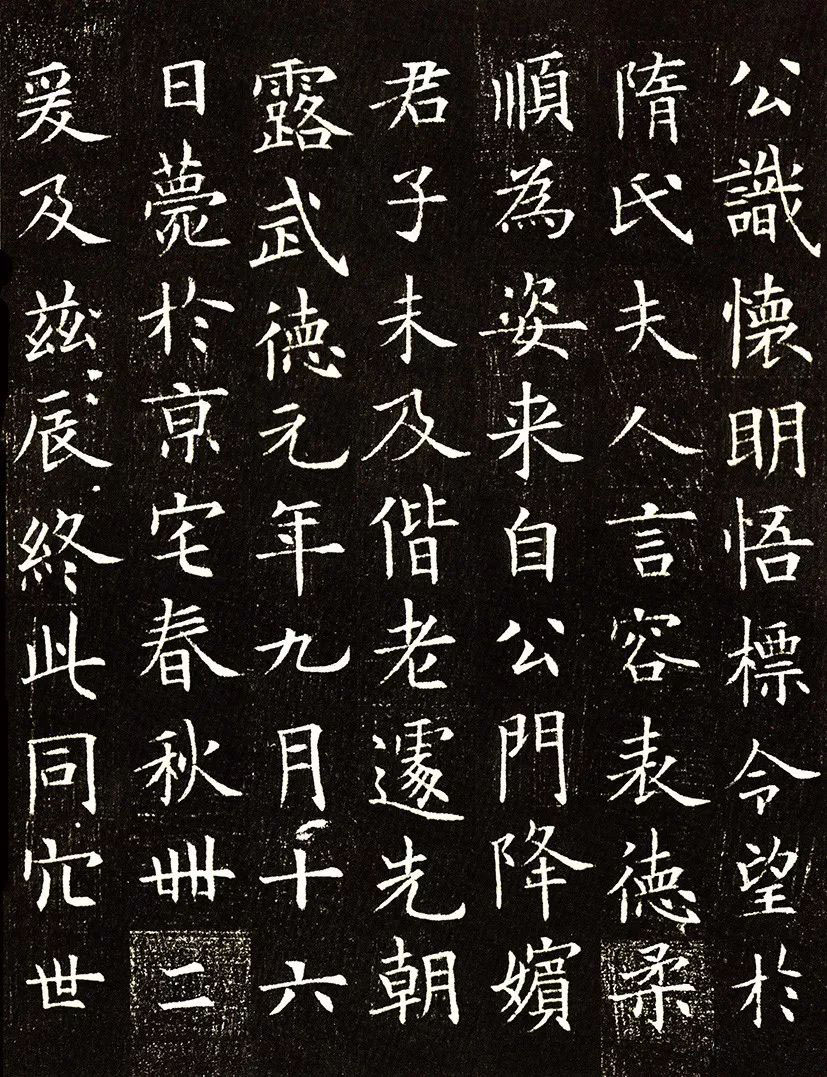 公識懷明悟標令望於
隋氏夫人言容表德柔
順為姿来自公門降嬪
君子未及偕老遽先朝
露武德元年九月十六
日薨於京宅春秋卌二
爰及茲辰終此同穴世